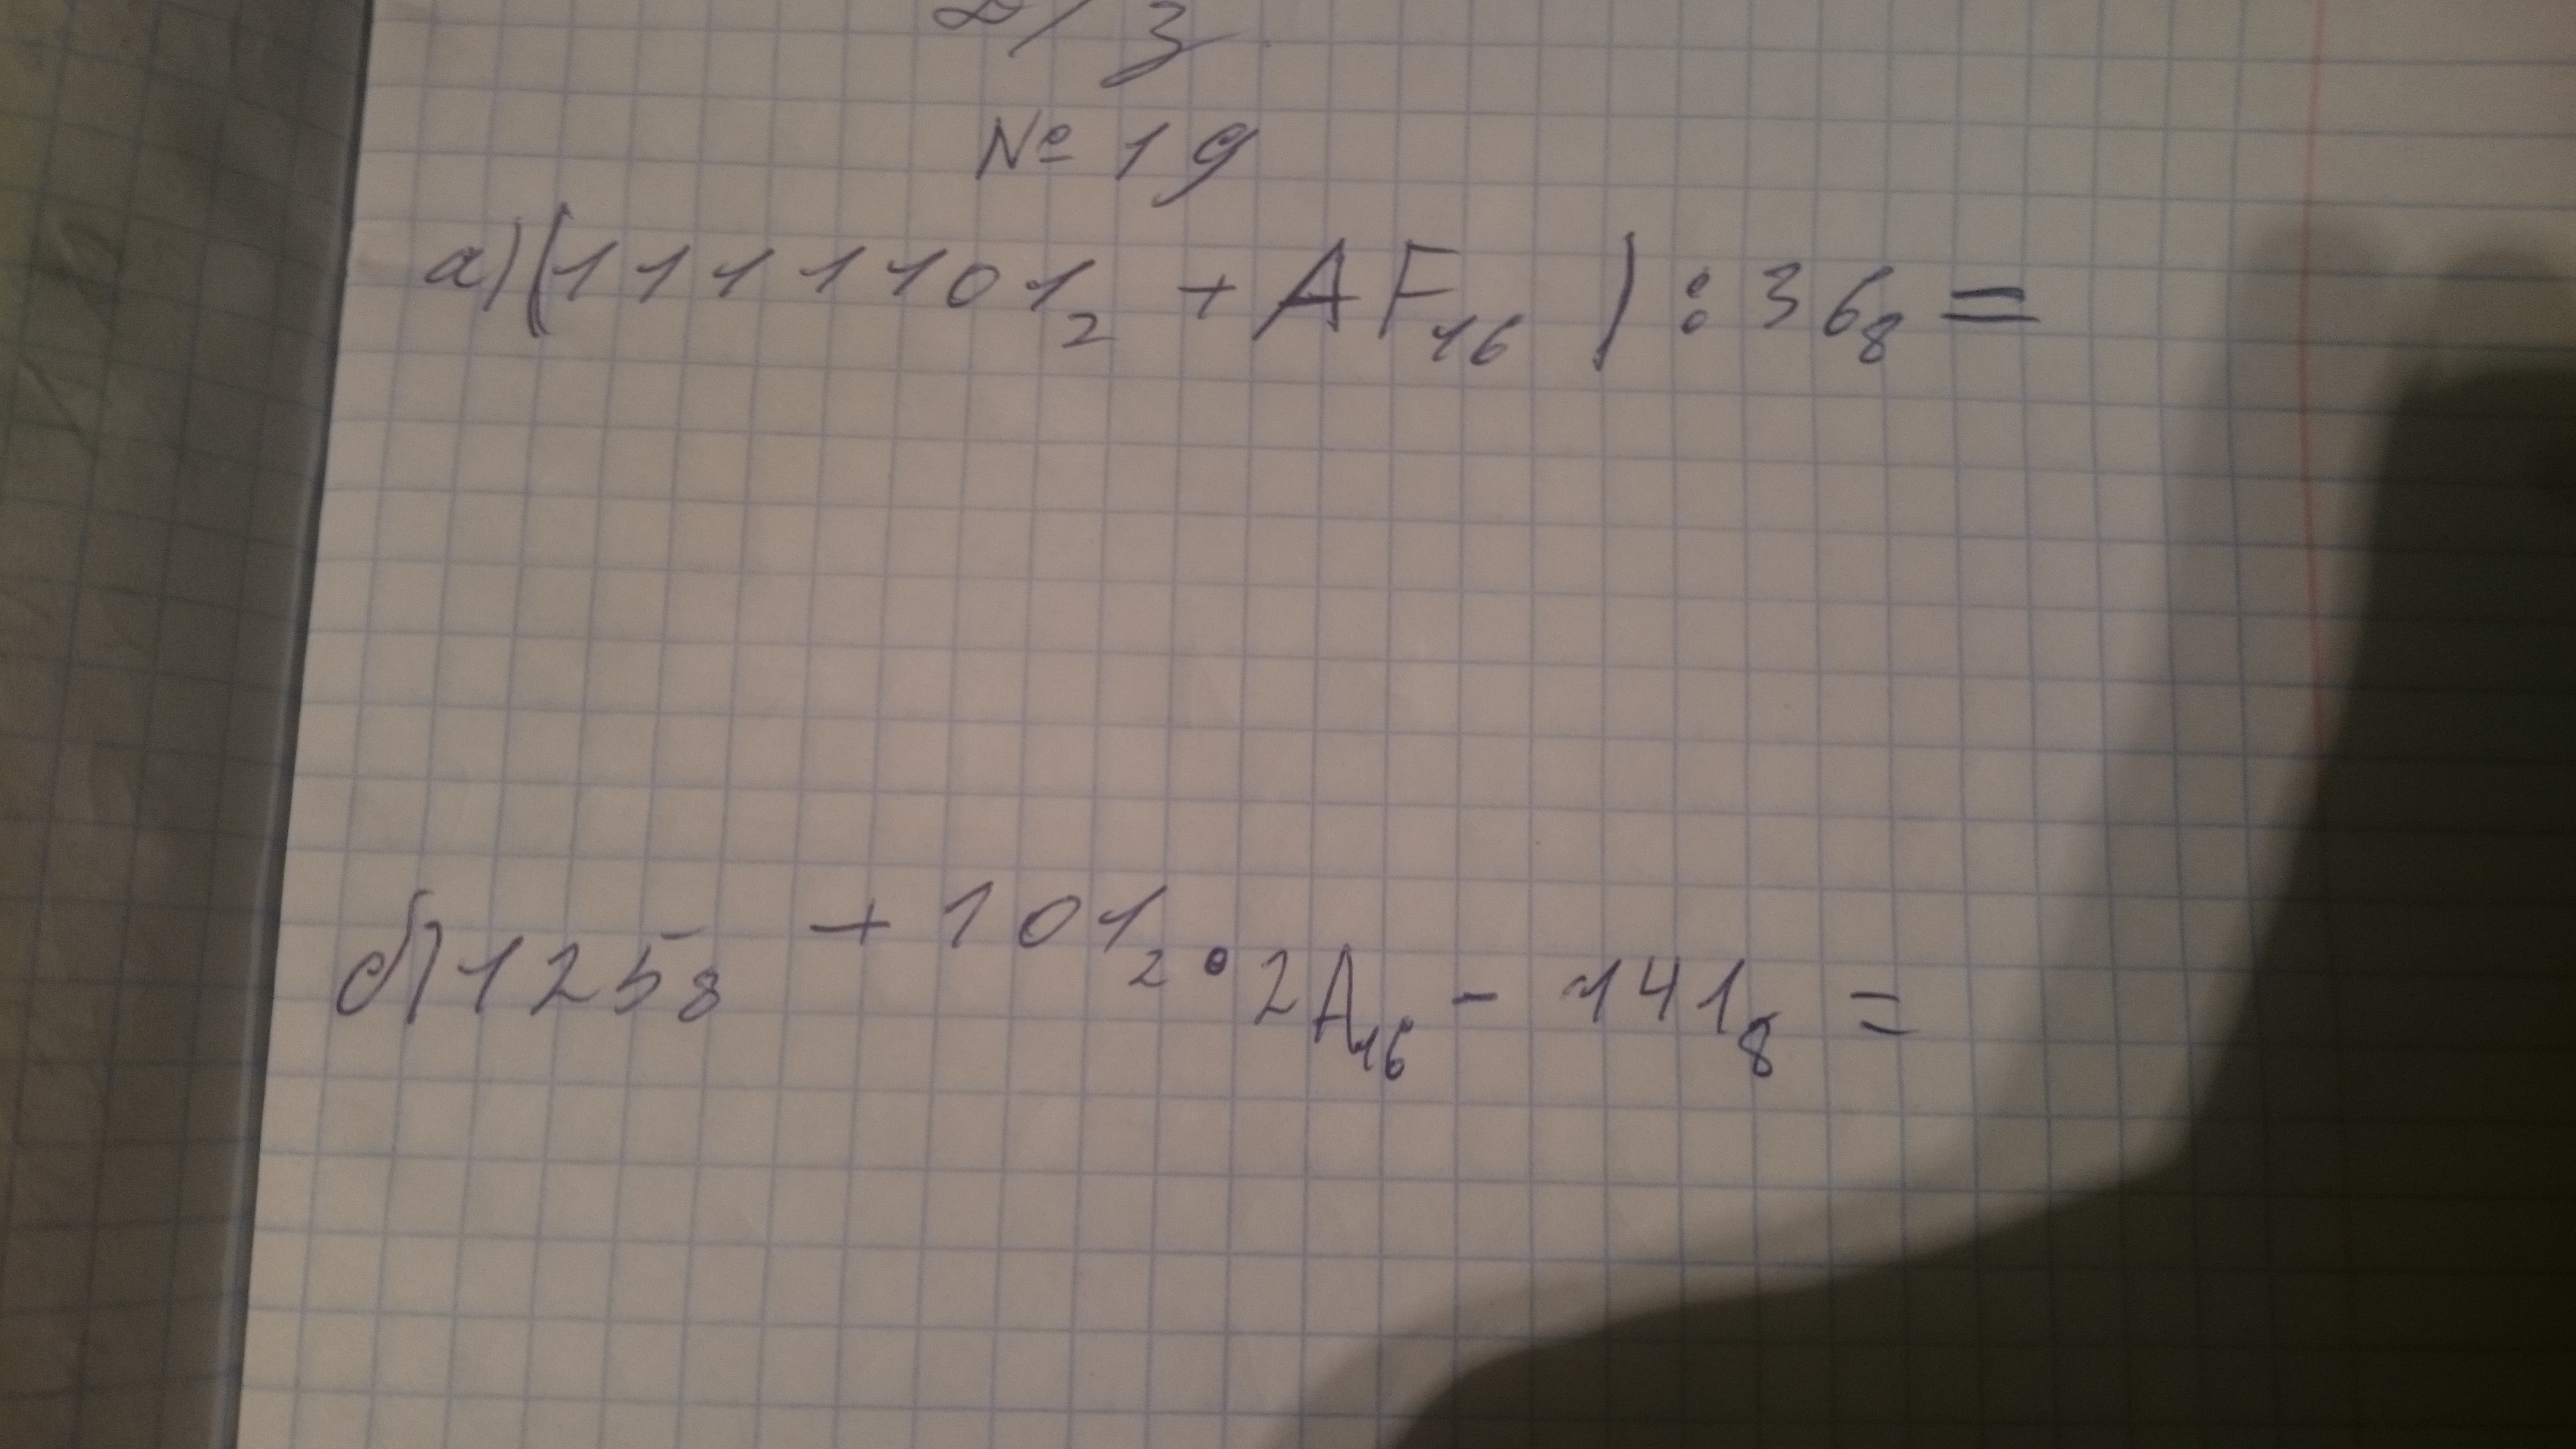 Д/З
№ 19
а) (1111101₂ + AF₁₆) : 36₈ =
б) 125₈ + 101₂ • 2A₁₆ - 141₈ =